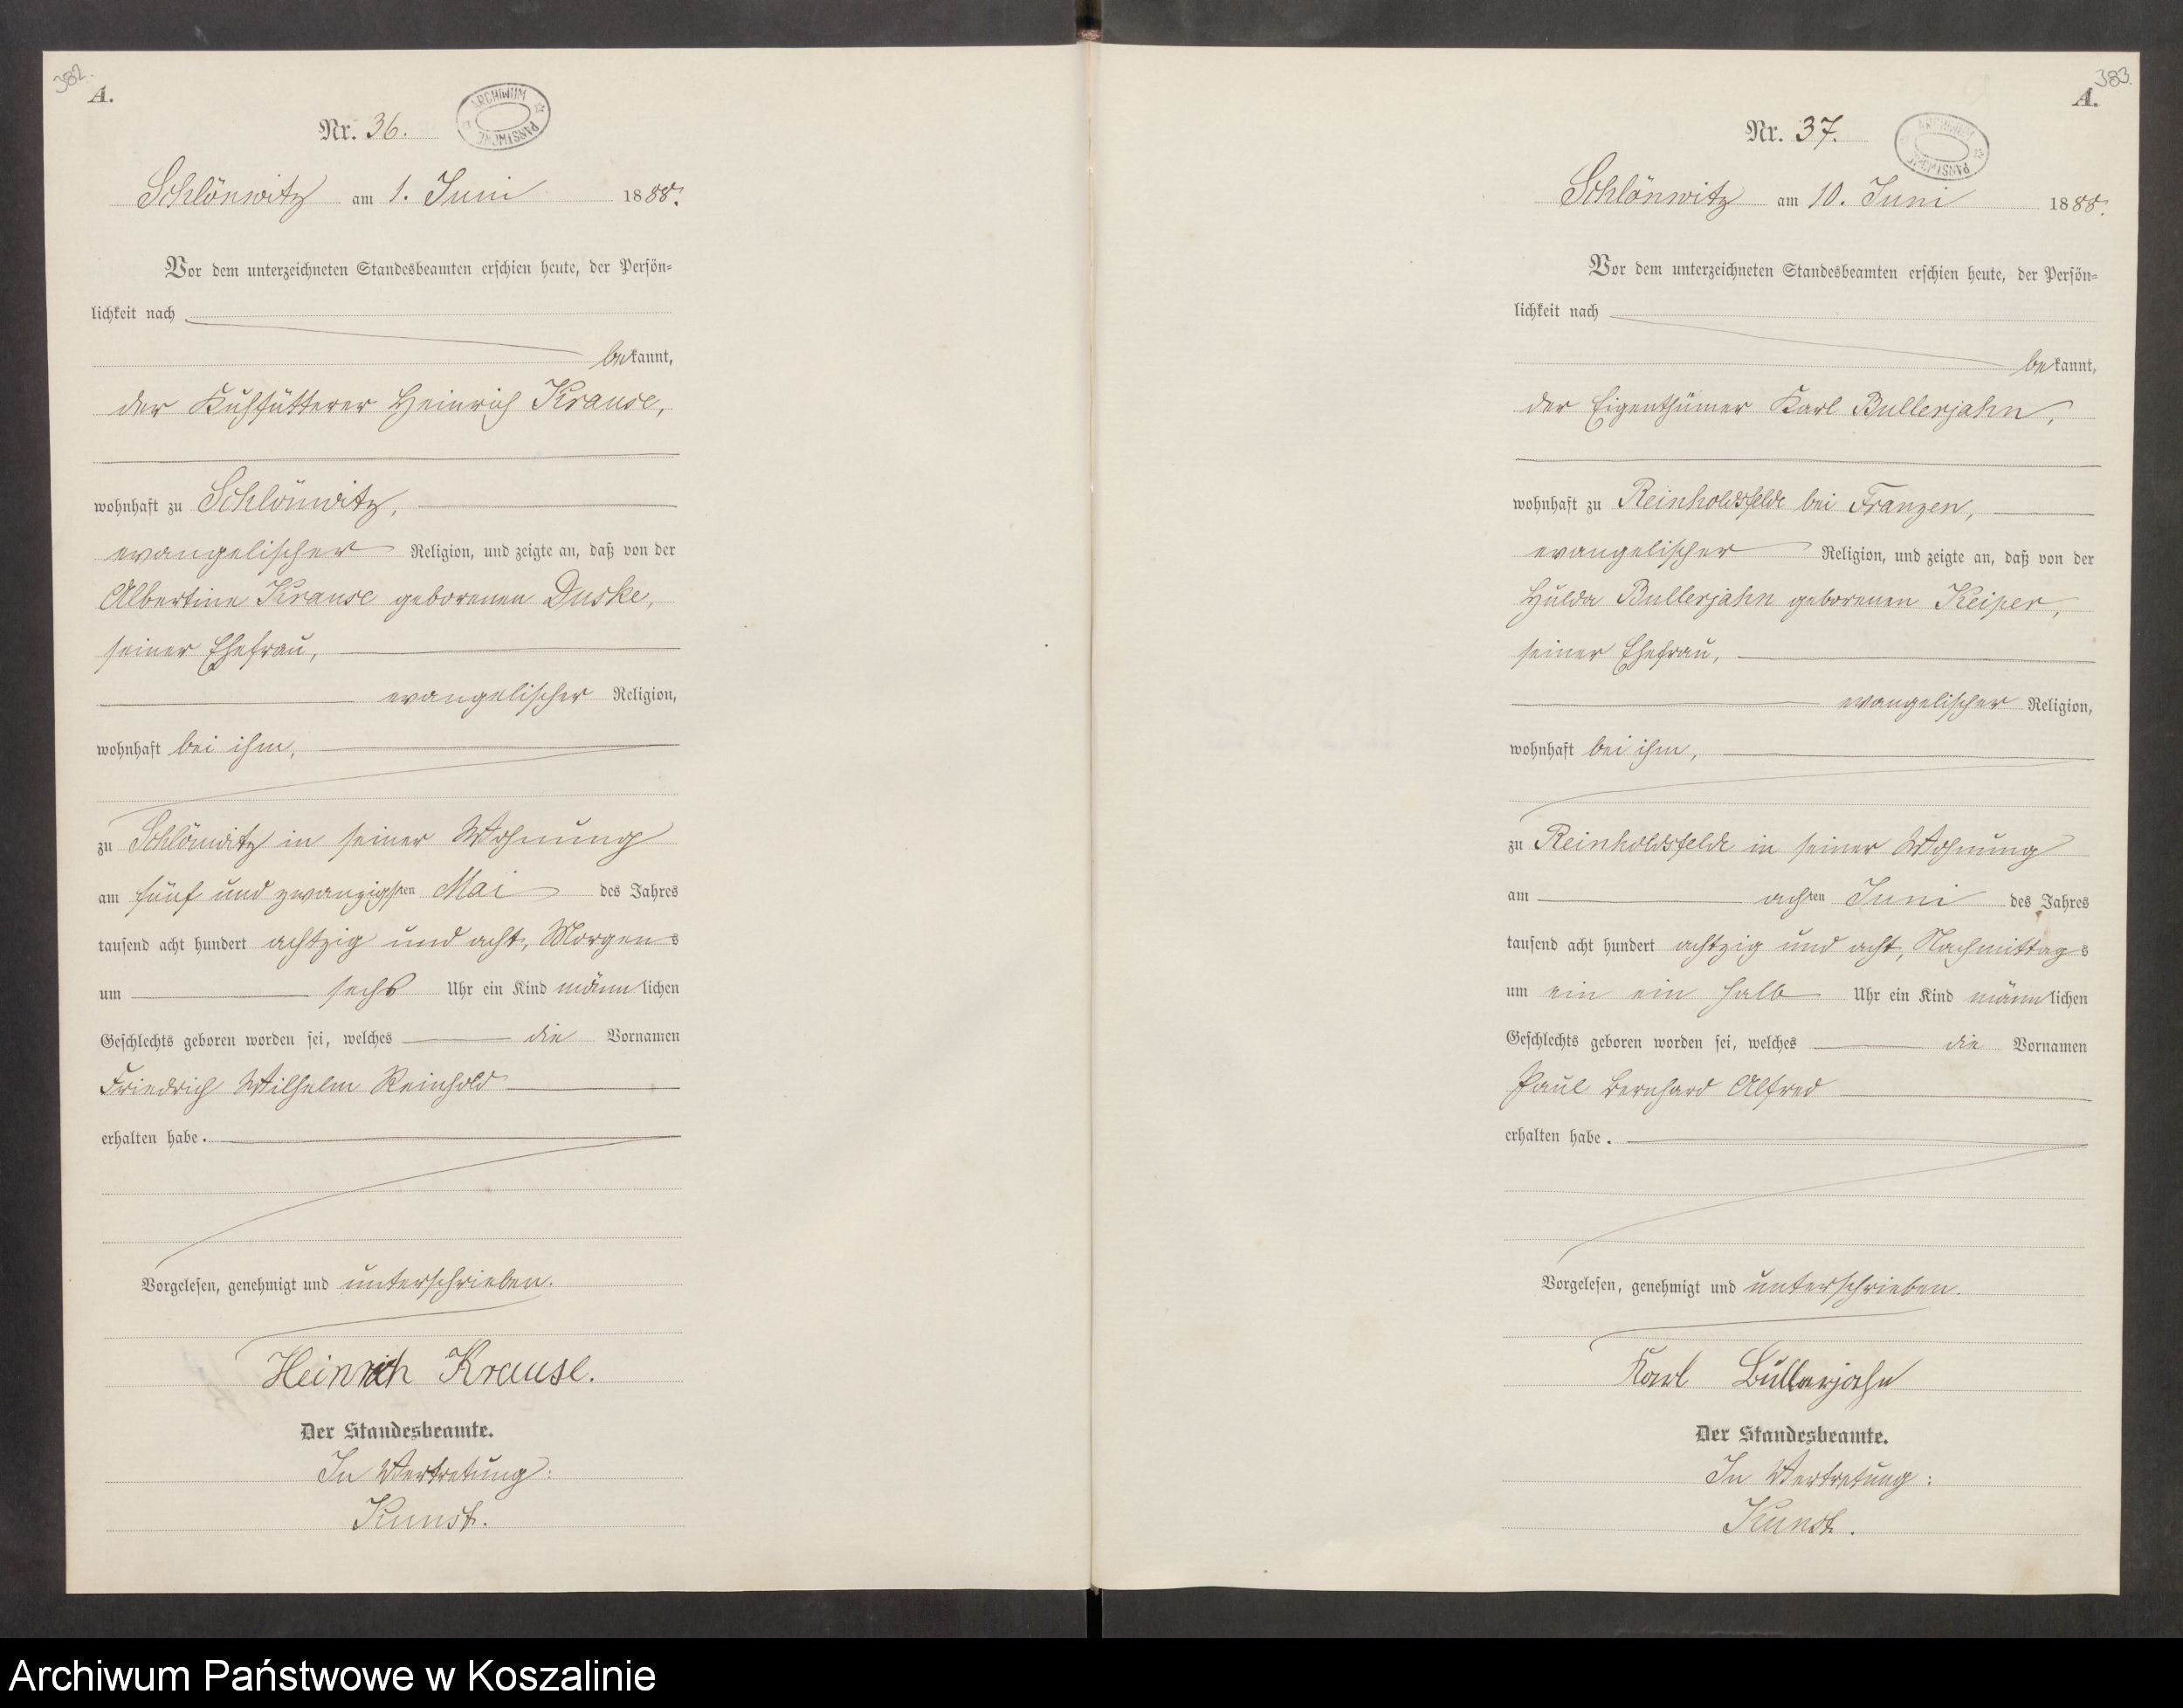 382.
A.
Nr. 36.
ARCHIWUM PAŃSTWOWE
Schlönwitz am 1. Juni 1888.
Vor dem unterzeichneten Standesbeamten erschien heute, der Persön-
lichkeit nach
bekannt,
der Kuhfütterer Heinrich Krause,
wohnhaft zu Schlönwitz,
evangelischer Religion, und zeigte an, daß von der
Albertine Krause geborenen Duske,
seiner Ehefrau,
evangelischer Religion,
wohnhaft bei ihm,
zu Schlönwitz in seiner Wohnung
am fünf und zwanzigsten Mai des Jahres
tausend acht hundert achtzig und acht, Morgens
um sechs Uhr ein Kind männlichen
Geschlechts geboren worden sei, welches die Vornamen
Friedrich Wilhelm Reinhold
erhalten habe.
Vorgelesen, genehmigt und unterschrieben.
Heinrich Krause.
Der Standesbeamte.
In Vertretung:
Kunst.
383.
A.
Nr. 37.
ARCHIWUM PAŃSTWOWE
Schlönwitz am 10. Juni 1888.
Vor dem unterzeichneten Standesbeamten erschien heute, der Persön-
lichkeit nach
bekannt,
der Eigenthümer Karl Bullerjahn,
wohnhaft zu Reinholdsfelde bei Franzen,
evangelischer Religion, und zeigte an, daß von der
Hulda Bullerjahn geborenen Keiper,
seiner Ehefrau,
evangelischer Religion,
wohnhaft bei ihm,
zu Reinholdsfelde in seiner Wohnung
am achten Juni des Jahres
tausend acht hundert achtzig und acht, Nachmittags
um ein ein halb Uhr ein Kind männlichen
Geschlechts geboren worden sei, welches die Vornamen
Paul Bernhard Alfred
erhalten habe.
Vorgelesen, genehmigt und unterschrieben.
Karl Bullerjahn
Der Standesbeamte.
In Vertretung:
Kunst.
Archiwum Państwowe w Koszalinie